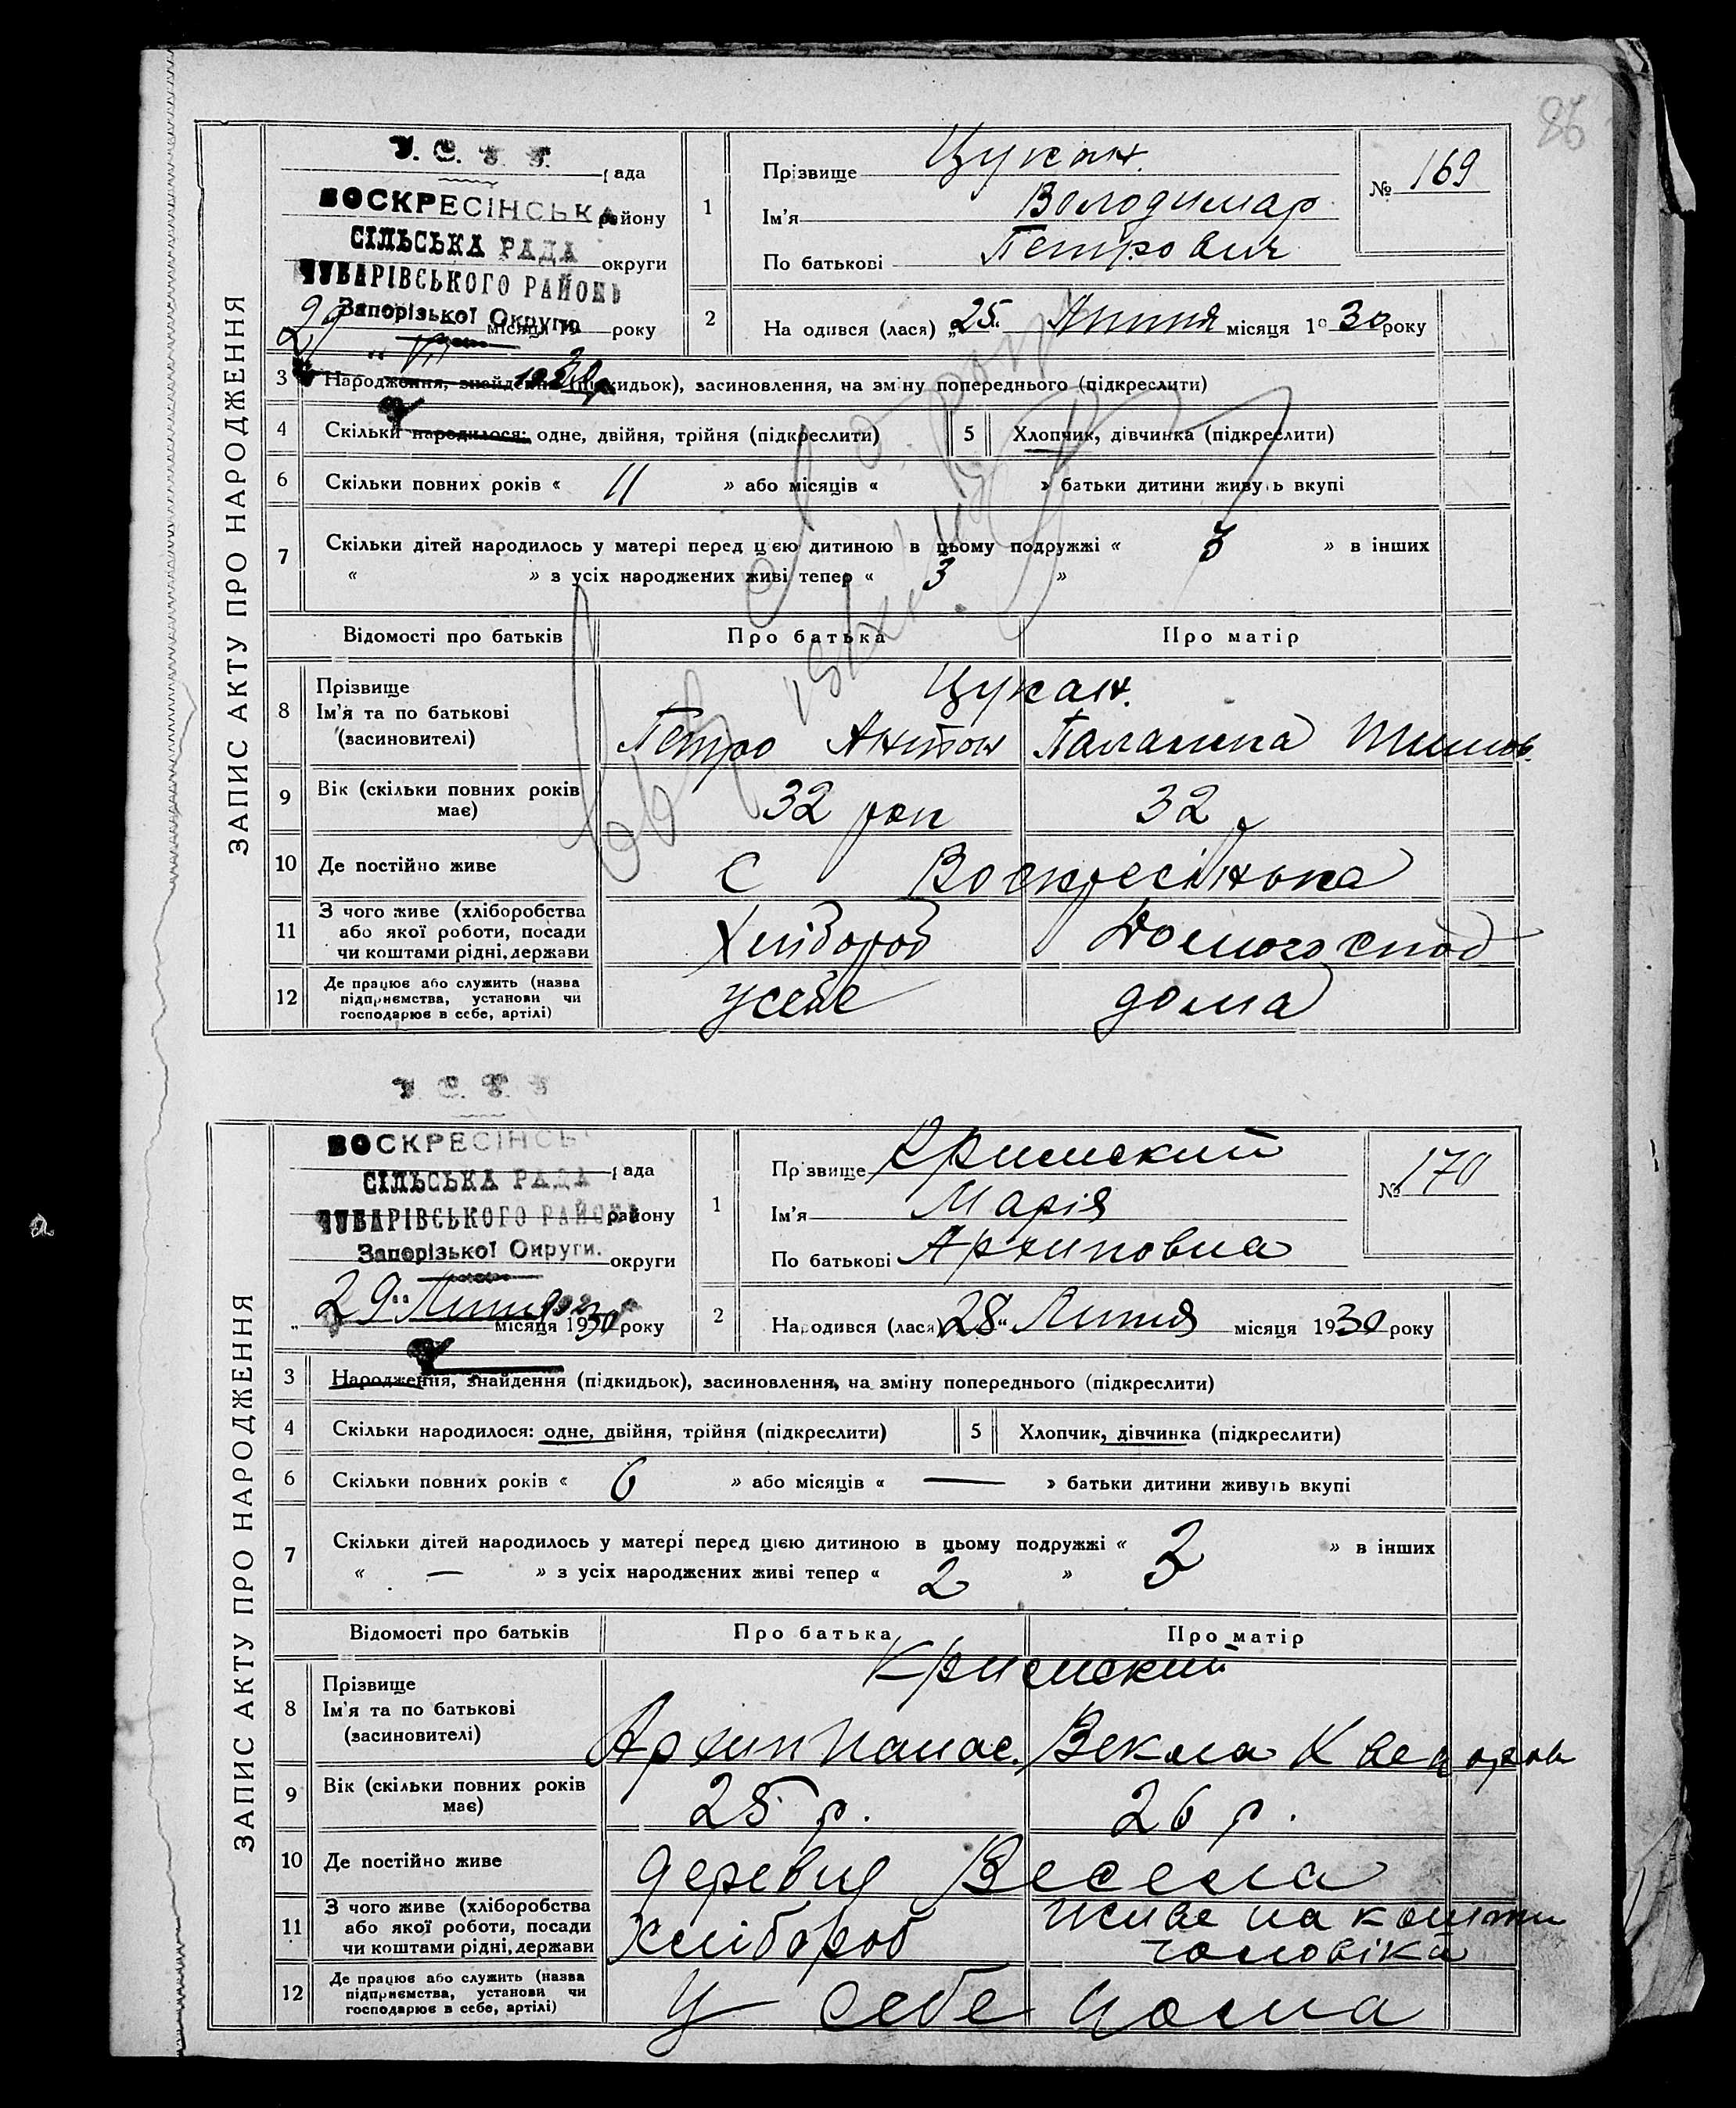 86
ЗАПИС АКТУ ПРО НАРОДЖЕННЯ
У. С. Р. Р.
рада
ВОСКРЕСІНСЬКА району
СІЛЬСЬКА РАДА
округи
ЧУБАРІВСЬКОГО РАЙОНУ
Запорізької Округи
29 " VII місяця 19 року
1930 р
1 Прізвище Цукан.
Ім'я Володимар
По батькові Петрович
№ 169
2 Народився (лася) „25" Липня місяця 1930 року
3 Народження, знайдення (підкидьок), засиновлення, на зміну попереднього (підкреслити)
4 Скільки народилося: одне, двійня, трійня (підкреслити) 5 Хлопчик, дівчинка (підкреслити)
6 Скільки повних років « 11 » або місяців « » батьки дитини живуть вкупі
7 Скільки дітей народилось у матері перед цією дитиною в цьому подружжі « 3 » в інших
« » з усіх народжених живі тепер « 3 »
Відомості про батьків Про батька Про матір
8 Прізвище Ім'я та по батькові (засиновителі)
Цукан.
Петро Антон Палажка Тимов
9 Вік (скільки повних років має) 32 рок 32 р
10 Де постійно живе С Воскресінька
11 З чого живе (хліборобства або якої роботи, посади чи коштами рідні, держави Хлібороб Домогоспод
12 Де працює або служить (назва підприємства, установи чи господарює в себе, артілі) усебе дома
ЗАПИС АКТУ ПРО НАРОДЖЕННЯ
У. С. Р. Р.
ВОСКРЕСІНСЬ
рада
СІЛЬСЬКА РАДА
ЧУБАРІВСЬКОГО РАЙОНУ району
Запорізької Округи.
округи
„29" Липня місяця 1930 року
1 Прізвище Кримский
Ім'я Марія
По батькові Архиповна
№ 170
2 Народився (лася) „28" Липня місяця 1930 року
3 Народження, знайдення (підкидьок), засиновлення, на зміну попереднього (підкреслити)
4 Скільки народилося: одне, двійня, трійня (підкреслити) 5 Хлопчик, дівчинка (підкреслити)
6 Скільки повних років « 6 » або місяців « — » батьки дитини живуть вкупі
7 Скільки дітей народилось у матері перед цією дитиною в цьому подружжі « 2 » в інших
« — » з усіх народжених живі тепер « 2 »
Відомості про батьків Про батька Про матір
8 Прізвище Ім'я та по батькові (засиновителі)
Кримский
Архип Панас. Векла
9 Вік (скільки повних років має) 25 р. 26 р.
10 Де постійно живе деревня Весела
11 З чого живе (хліборобства або якої роботи, посади чи коштами рідні, держави Хлібороб живе на кошти чоловіка
12 Де працює або служить (назва підприємства, установи чи господарює в себе, артілі) У себе дома